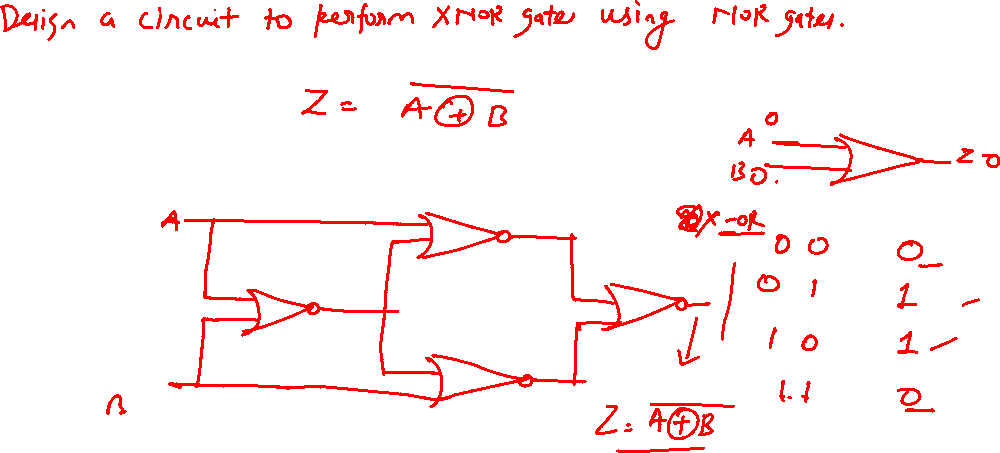 Design a circuit to perform XNOR gate using NOR gates.
Z = \overline{A ⊕ B}
A 0
B 0. Z 0
X-OR
0 0 0
0 1 1
1 0 1
1 1 0
A
B
Z = \overline{A ⊕ B}